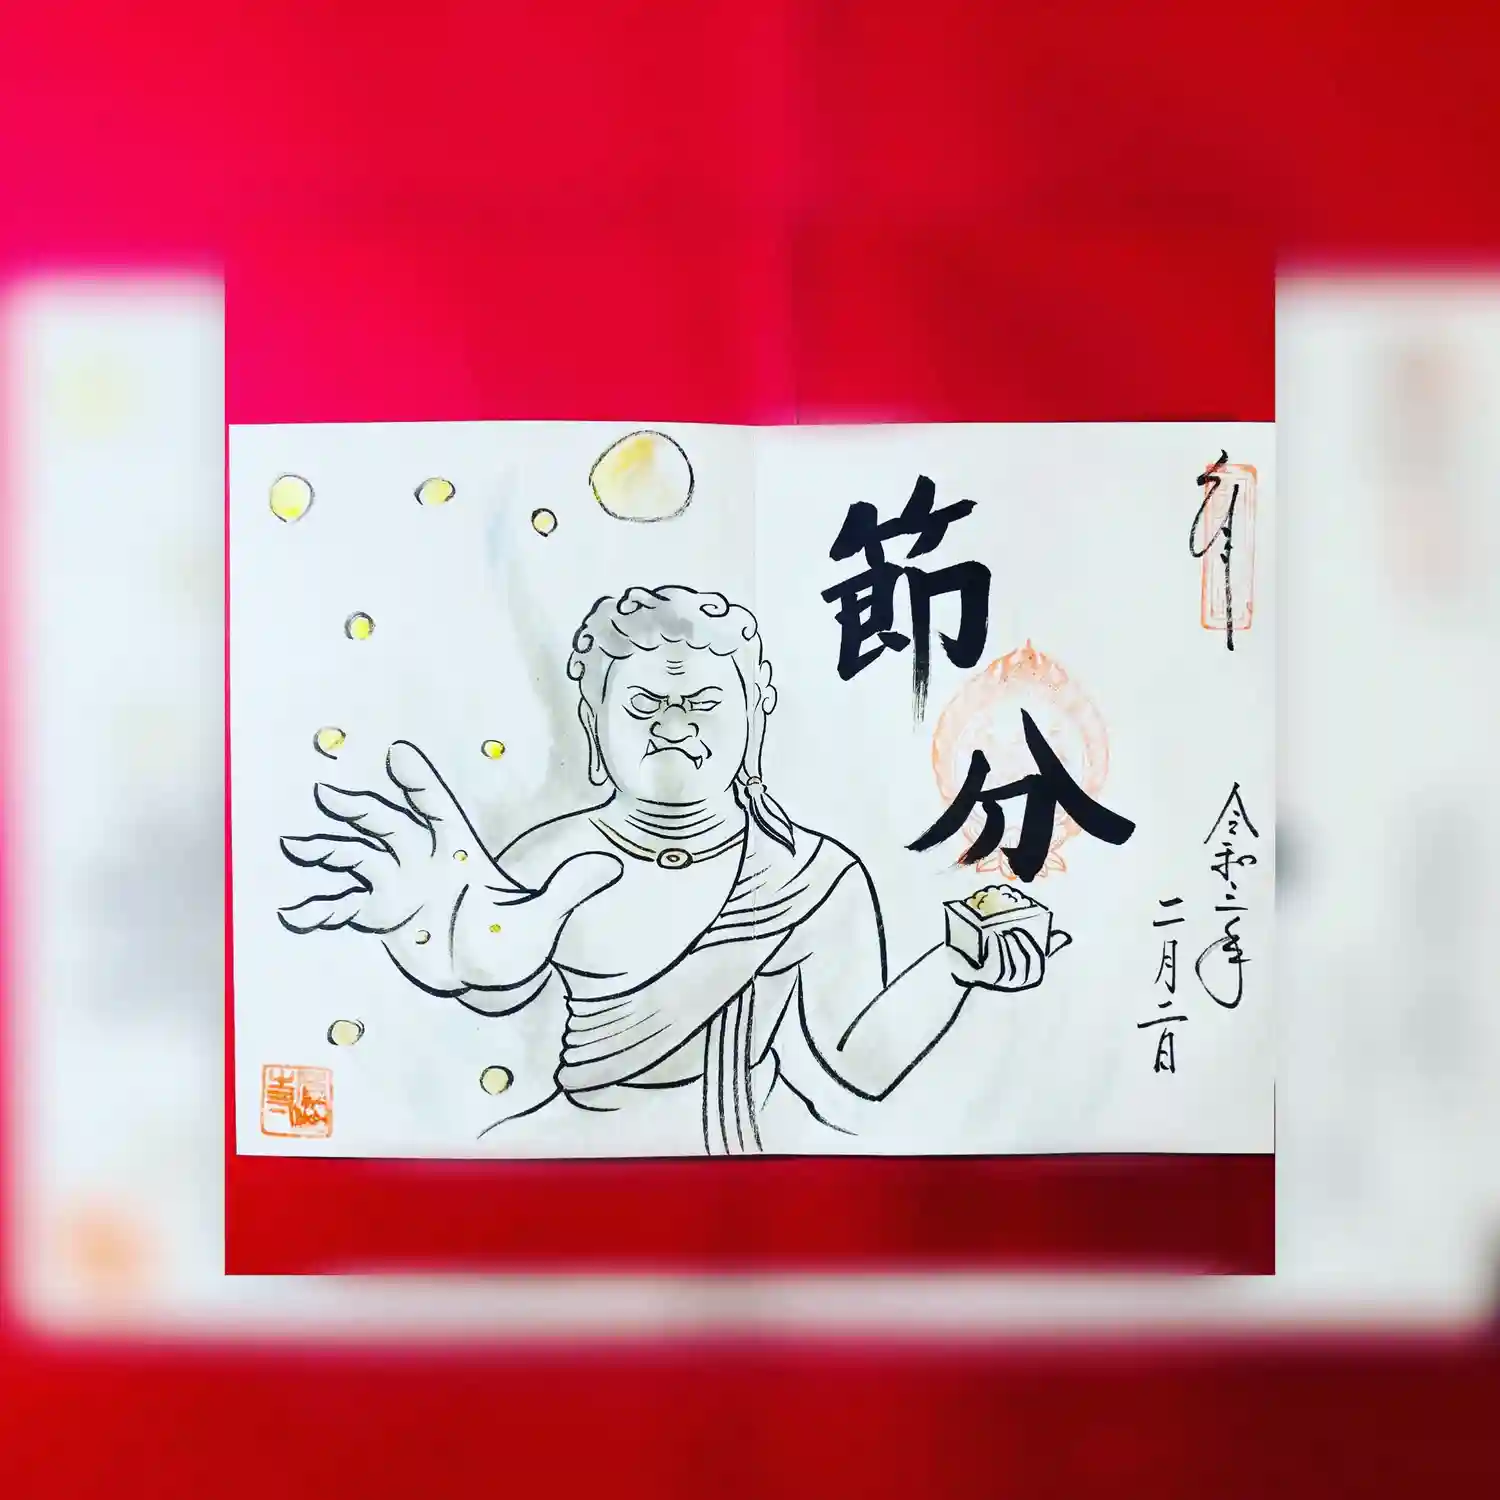 奉拝
令和三年
二月二日
節分